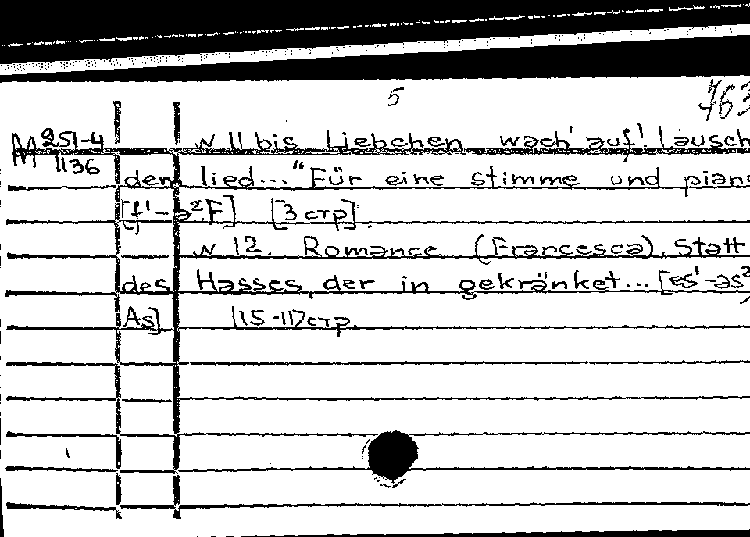 5
763
M 251-4
1136
N 11 bis Liebchen wach' auf! Lausch
dem lied..." Für eine stimme und piano
[f¹-a² F] [3 стр].
N 12. Romance (Francesca). Statt
des Hasses, der in gekränket... [es¹-as²,
As] [15-11] стр.